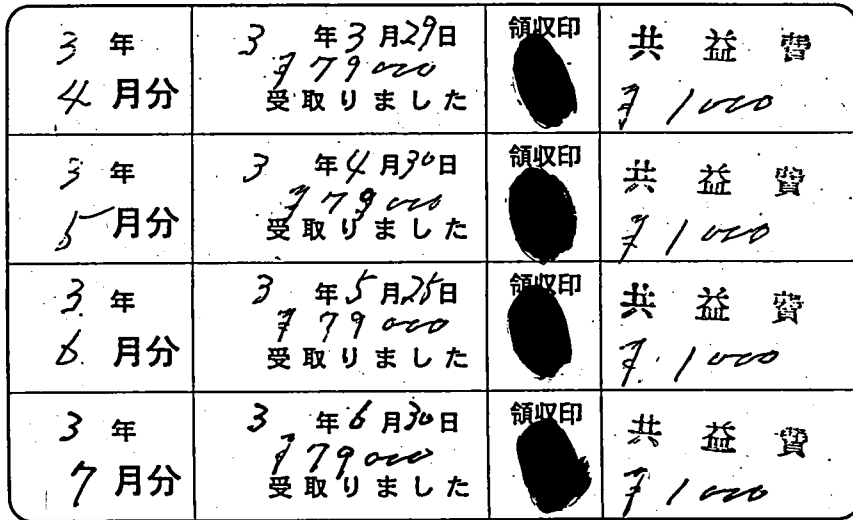 3年
4月分
3年3月29日
¥79000
受取りました
領収印
共益費
¥1000
3年
5月分
3年4月30日
¥79000
受取りました
領収印
共益費
¥1000
3年
6月分
3年5月25日
¥79000
受取りました
領収印
共益費
¥1000
3年
7月分
3年6月30日
¥79000
受取りました
領収印
共益費
¥1000